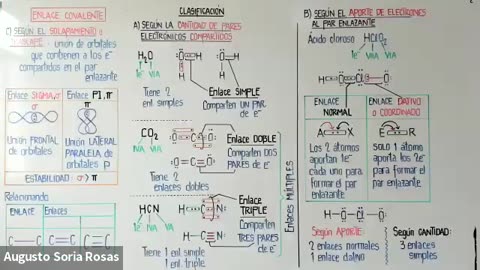 ENLACE COVALENTE
C) SEGÚN EL SOLAPAMIENTO o
- unión de orbitales
que contienen a los e⁻
compartidos en el par
enlazante
Enlace SIGMA, σ
σ
Unión FRONTAL
de orbitales
Enlace PI, π
π
Unión LATERAL
PARALELA de
orbitales P
ESTABILIDAD: σ > π
Relacionando
ENLACE
Enlaces
C=C
C≡C
Augusto Soria Rosas
CLASIFICACIÓN
A) SEGÚN LA CANTIDAD DE PARES
ELECTRÓNICOS COMPARTIDOS
H₂O
1e⁻ VIA
Tiene 2
enl. simples
Enlace SIMPLE
Comparten UN PAR
de e⁻
CO₂
IVA VIA
Tiene 2
enlaces dobles
Enlace DOBLE
Comparten DOS
PARES de e⁻
HCN
1e⁻ IVA VA
Tiene 1 enl. simple
1 enl. triple
Enlace
TRIPLE
Comparten
TRES PARES
de e⁻
Enlaces MÚLTIPLES
B) SEGÚN EL APORTE DE ELECTRONES
AL PAR ENLAZANTE
Ácido cloroso HClO₂
1e⁻ VIIA VIA
H O Cl O
ENLACE
NORMAL
A X
Los 2 átomos
aportan 1e⁻
cada uno para
formar el par
enlazante
ENLACE DATIVO
o COORDINADO
E R
SOLO 1 átomo
aporta los 2e⁻
para formar el
par enlazante
H-O-Cl→O
Según Aporte
2 enlaces normales
1 enlace dativo
Según CANTIDAD:
3 enlaces
simples